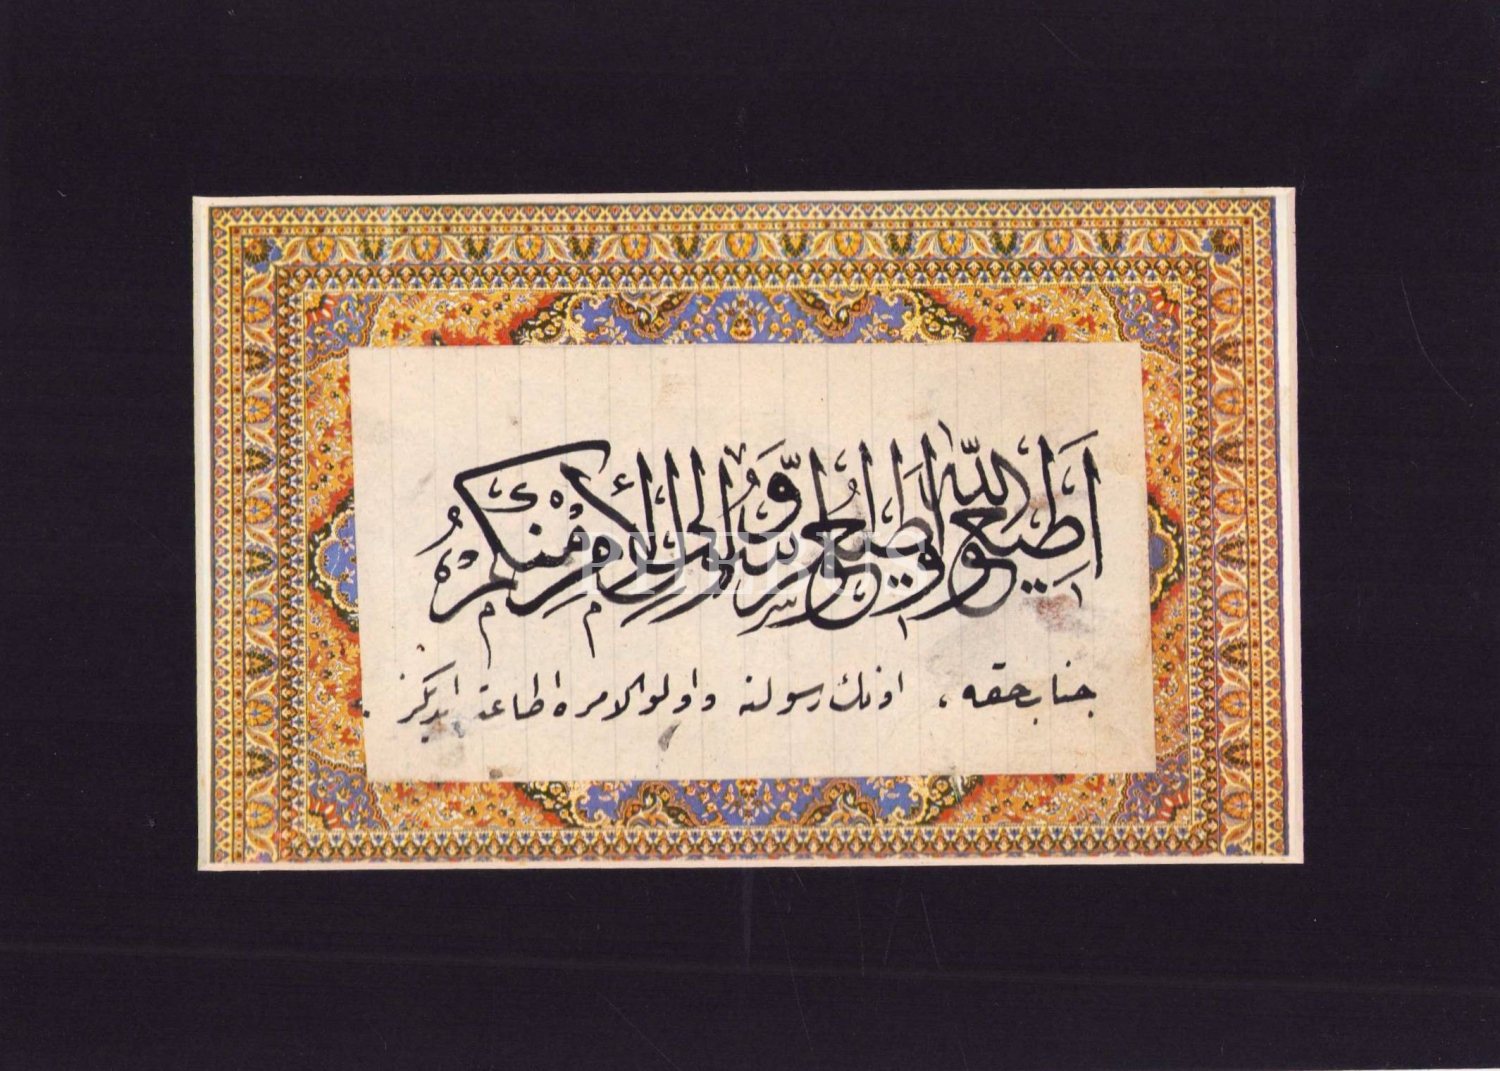 اَطِيعُوا اللّٰهَ وَاَطِيعُوا الرَّسُولَ وَاُولِى الْاَمْرِ مِنْكُمْ
PHEBUS
جناب حقه، اونك رسولنه و اولو الامره اطاعت ايدكز.